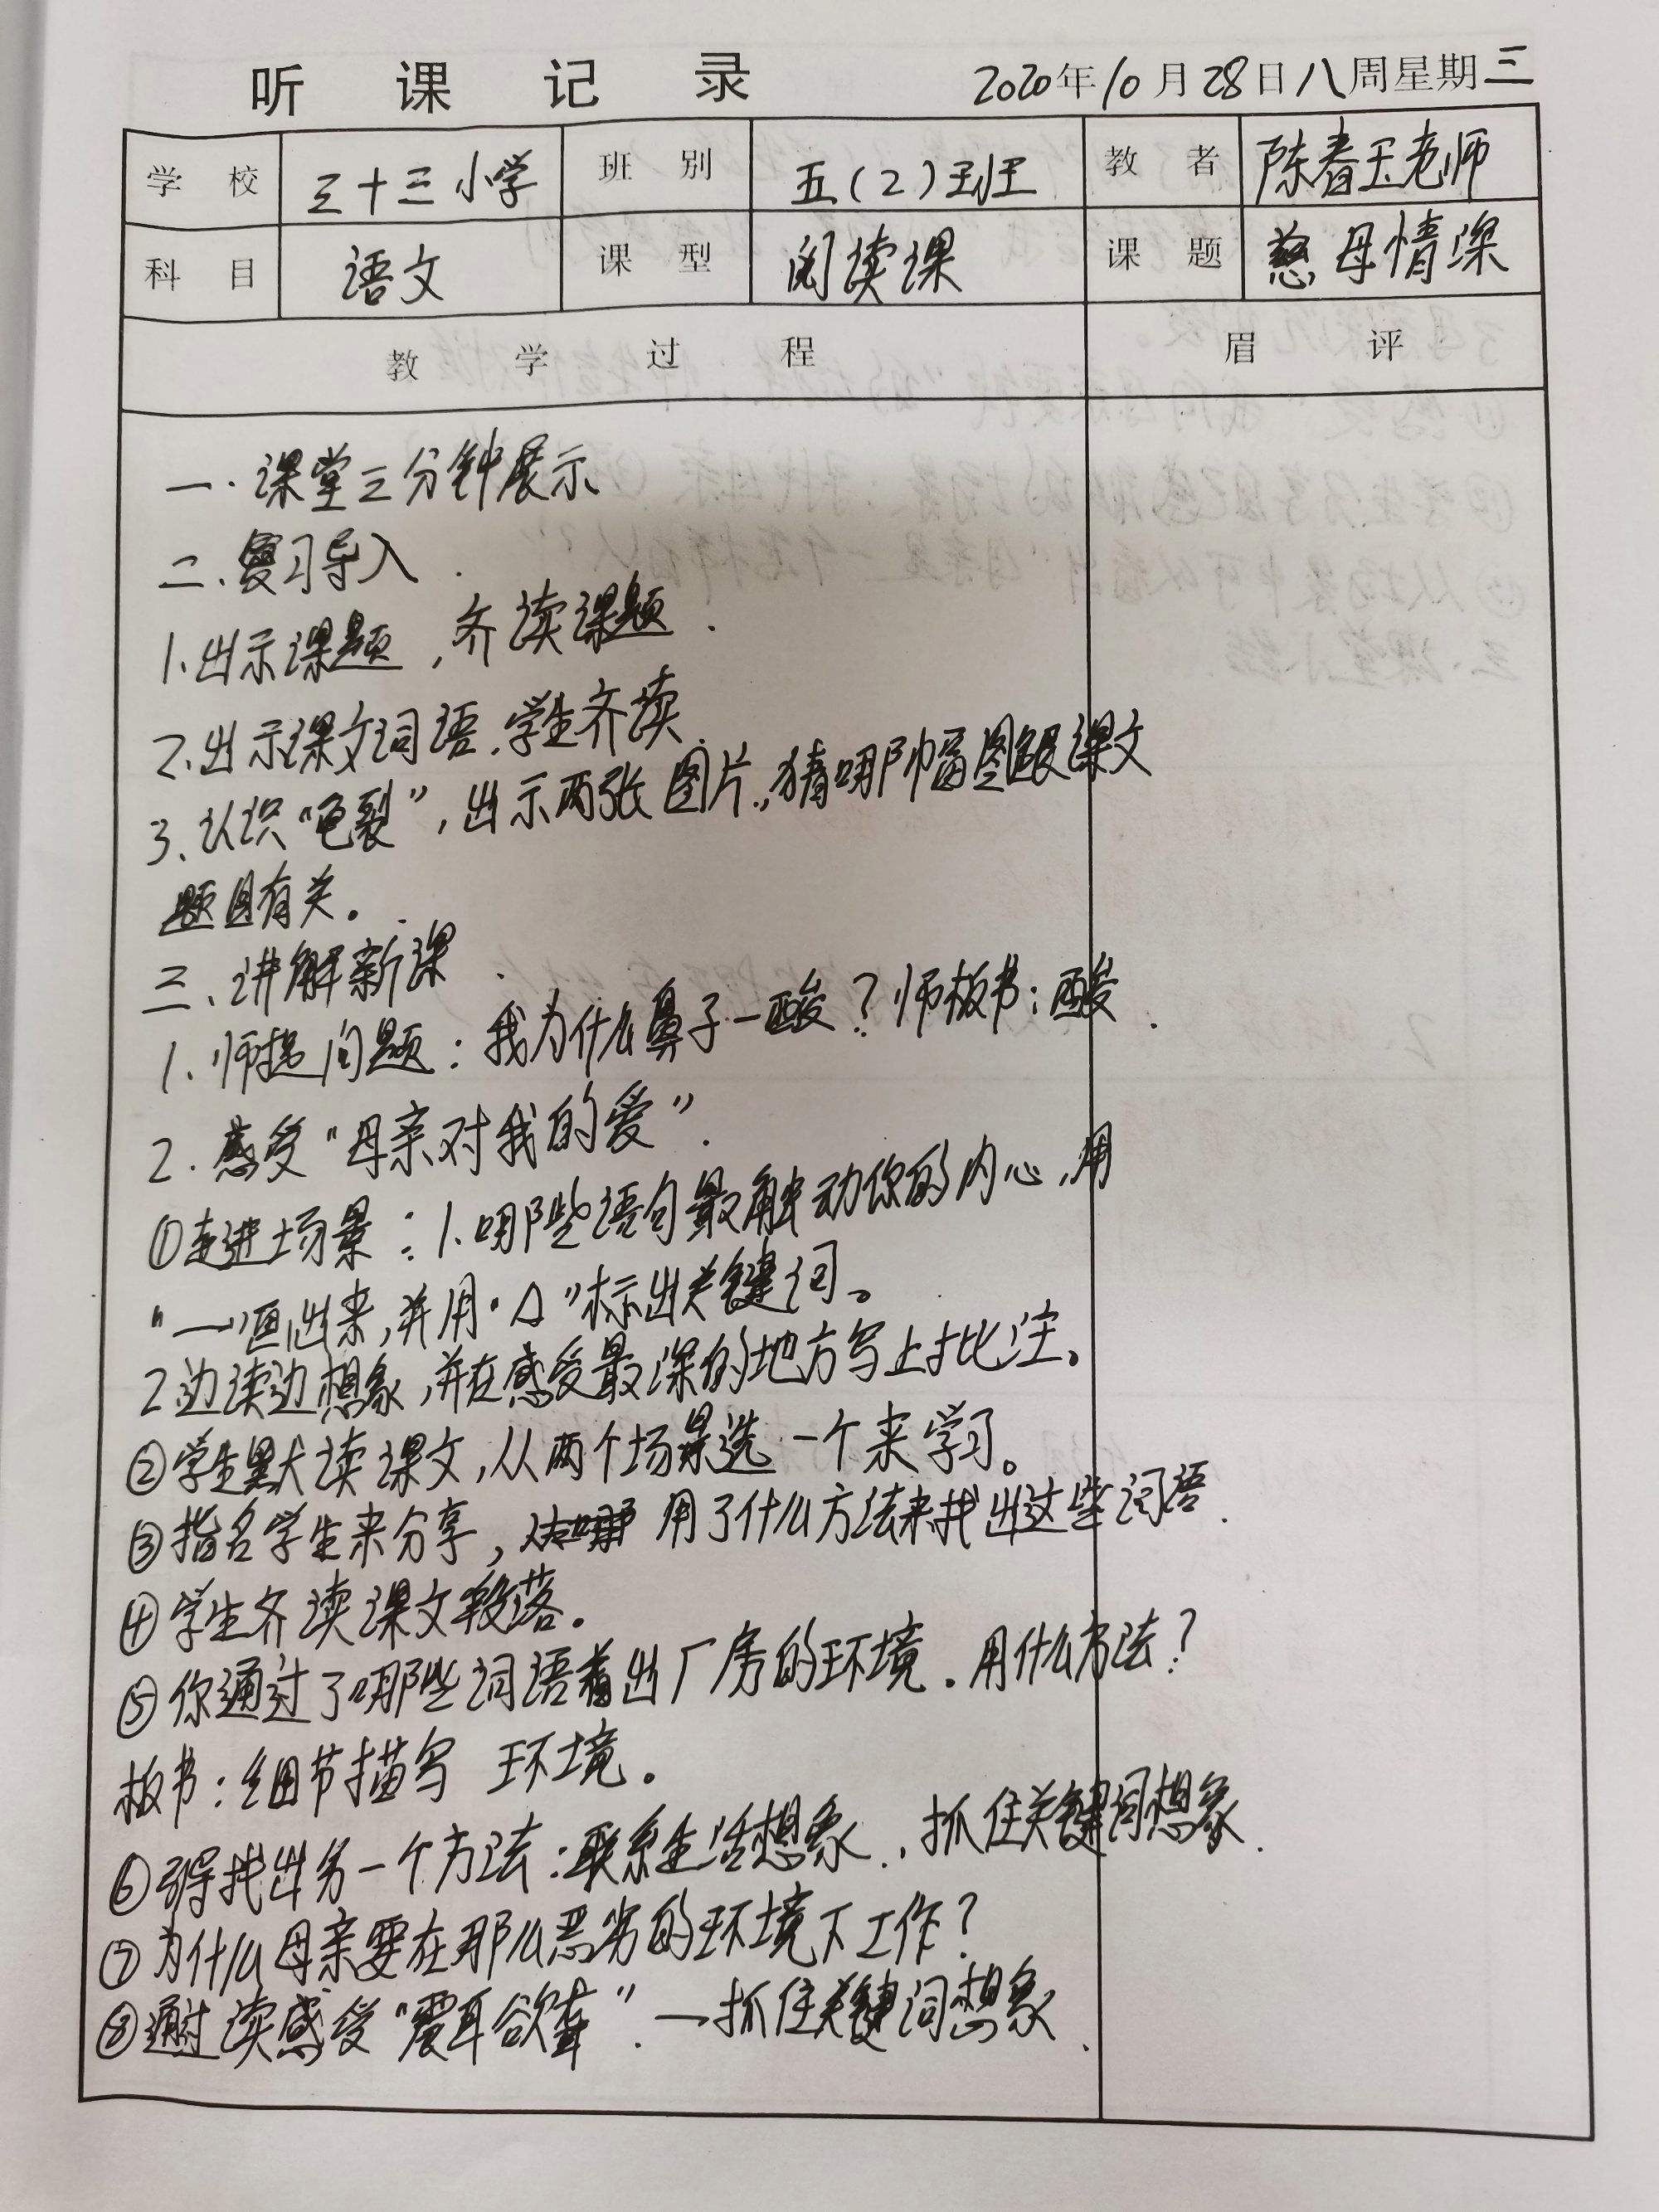 听课记录 2020年10月28日八周星期三
学校 三十三小学 班别 五(2)班 教者 陈春玉老师
科目 语文 课型 阅读课 课题 慈母情深
教学过程 眉评
一.课堂三分钟展示
二、复习导入.
1.出示课题,齐读课题.
2.出示课文词语.学生齐读.
3、认识“龟裂”,出示两张图片,猜哪幅图跟课文
题目有关。
三、讲解新课.
1.师提问题:我为什么鼻子一酸?师板书:酸.
2.感受“母亲对我的爱”.
①走进场景:1.哪些语句最触动你的内心,用
“—”画出来,并用“△”标出关键词。
2边读边想象,并在感受最深的地方写上批注。
②学生默读课文,从两个场景选一个来学习。
③指名学生来分享,用了什么方法来找出这些词语.
④学生齐读课文段落。
⑤你通过了哪些词语看出厂房的环境.用什么方法?
板书:细节描写 环境.
⑥得找出另一个方法:联系生活想象.,抓住关键词想象.
⑦为什么母亲要在那么恶劣的环境下工作?
⑧通过读感受“震耳欲聋”.—抓住关键词想象.